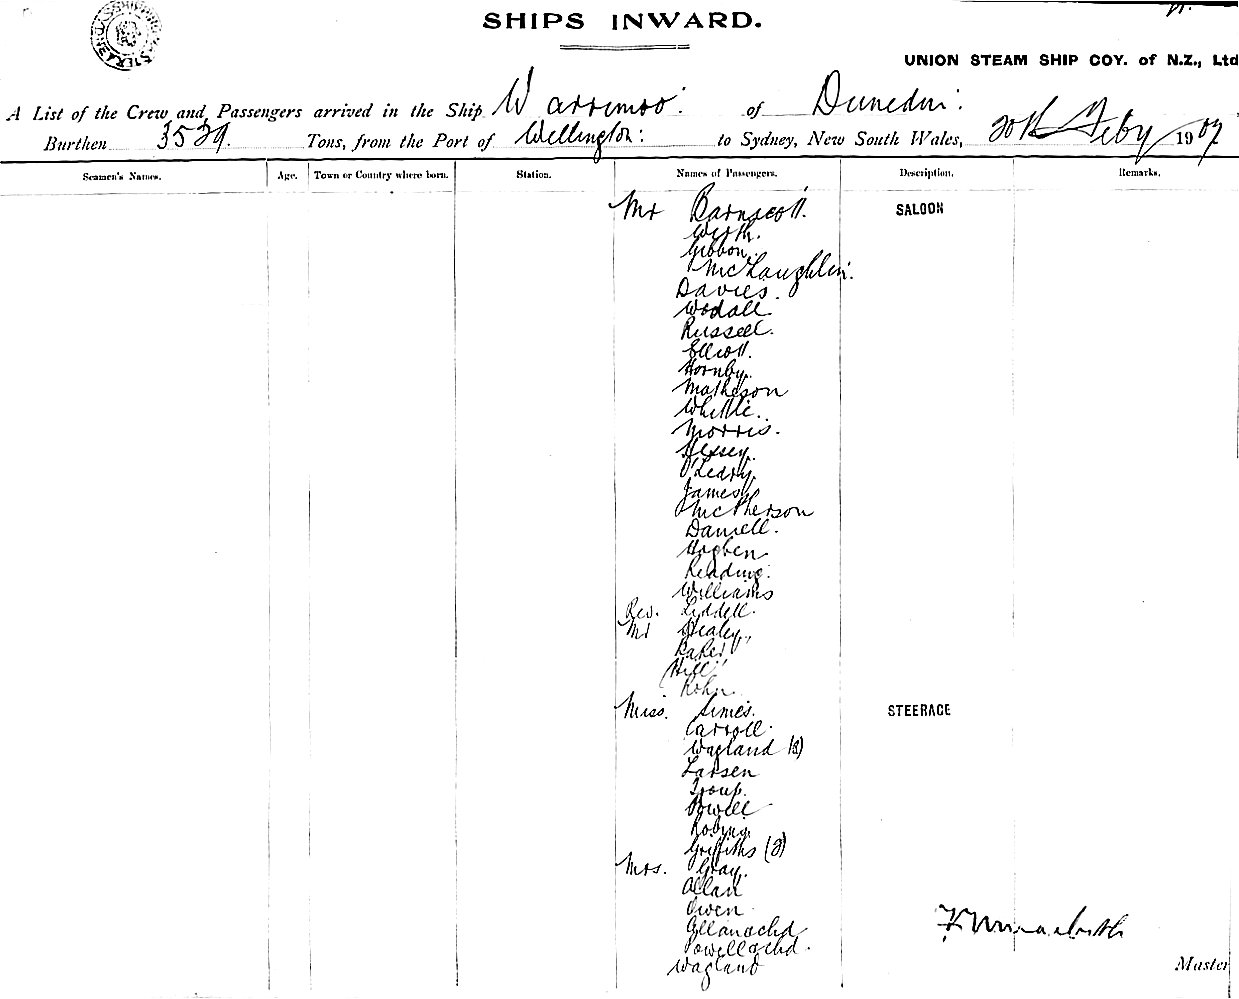 SHIPS INWARD.
UNION STEAM SHIP COY. of N.Z., Ltd
A List of the Crew and Passengers arrived in the Ship Warrimoo. of Dunedin.
Burthen 3529. Tons, from the Port of Wellington: to Sydney, New South Wales, 20th Feby 1907
Seamen's Names. Age. Town or Country where born. Station. Names of Passengers. Description. Remarks.
Mr Barnscott. SALOON
Wirth.
Gibbon.
McLaughlin.
Davies.
Wodall
Russell.
Elliott.
Hornby.
Matheson
Whittle.
Morris.
O'Leary.
James
McPherson
Daniell.
Hogben
Reading.
Williams
Rev. Liddell.
Mr Healey,
Baker
Hill
Kohn.
Miss. Simes. STEERAGE
Carroll.
Wagland (2)
Larsen
Troup.
Powell
Robins.
Griffiths (2)
Mrs. Gray.
Allan
Owen
Powell & chd.
Wagland
Master